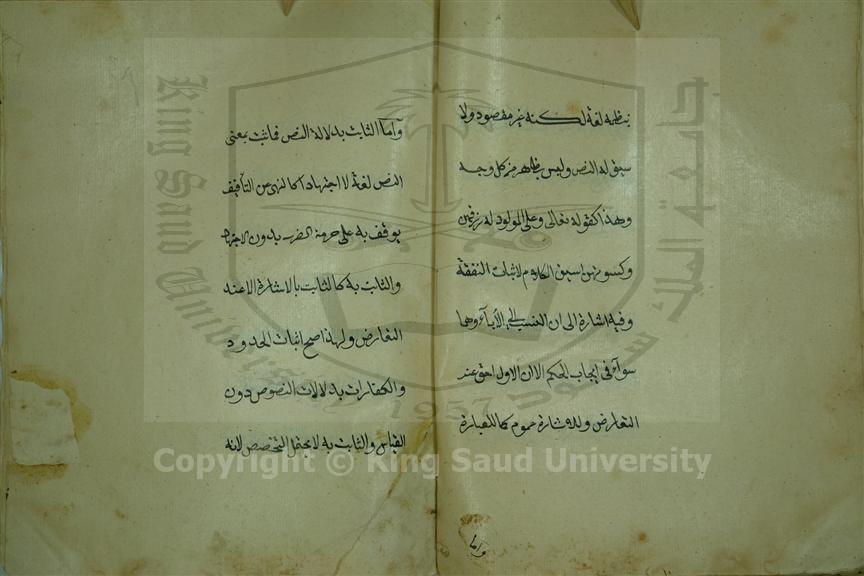 بنظمه لغة لكنه غير مقصود ولا
سيق له النص وليس بظاهر من كل وجه
وهذا كقوله تعالى وعلى المولود له رزقهن
وكسوتهن سيق الكلام لاثبات النفقة
وفيه اشارة الى ان النسب الى الأباء وهما
سوآء فى ايجاب الحكم الا ان الاول احق عند
التعارض وللاشارة عموم كما للعبارة
واما
وأما الثابت بدلالة النص فما ثبت بمعنى
النص لغة لا اجتهادا كالنهى عن التأفيف
يوقف به على حرمة الضرب بدون الاجتهاد
والثابت به كالثابت بالاشارة الا عند
التعارض ولهذا صح اثبات الحدود
والكفارات بدلالات النصوص دون
القياس والثابت به لا يحتمل التخصيص لانه
King Saud University
جامعة الملك سعود
1957
Copyright © King Saud University